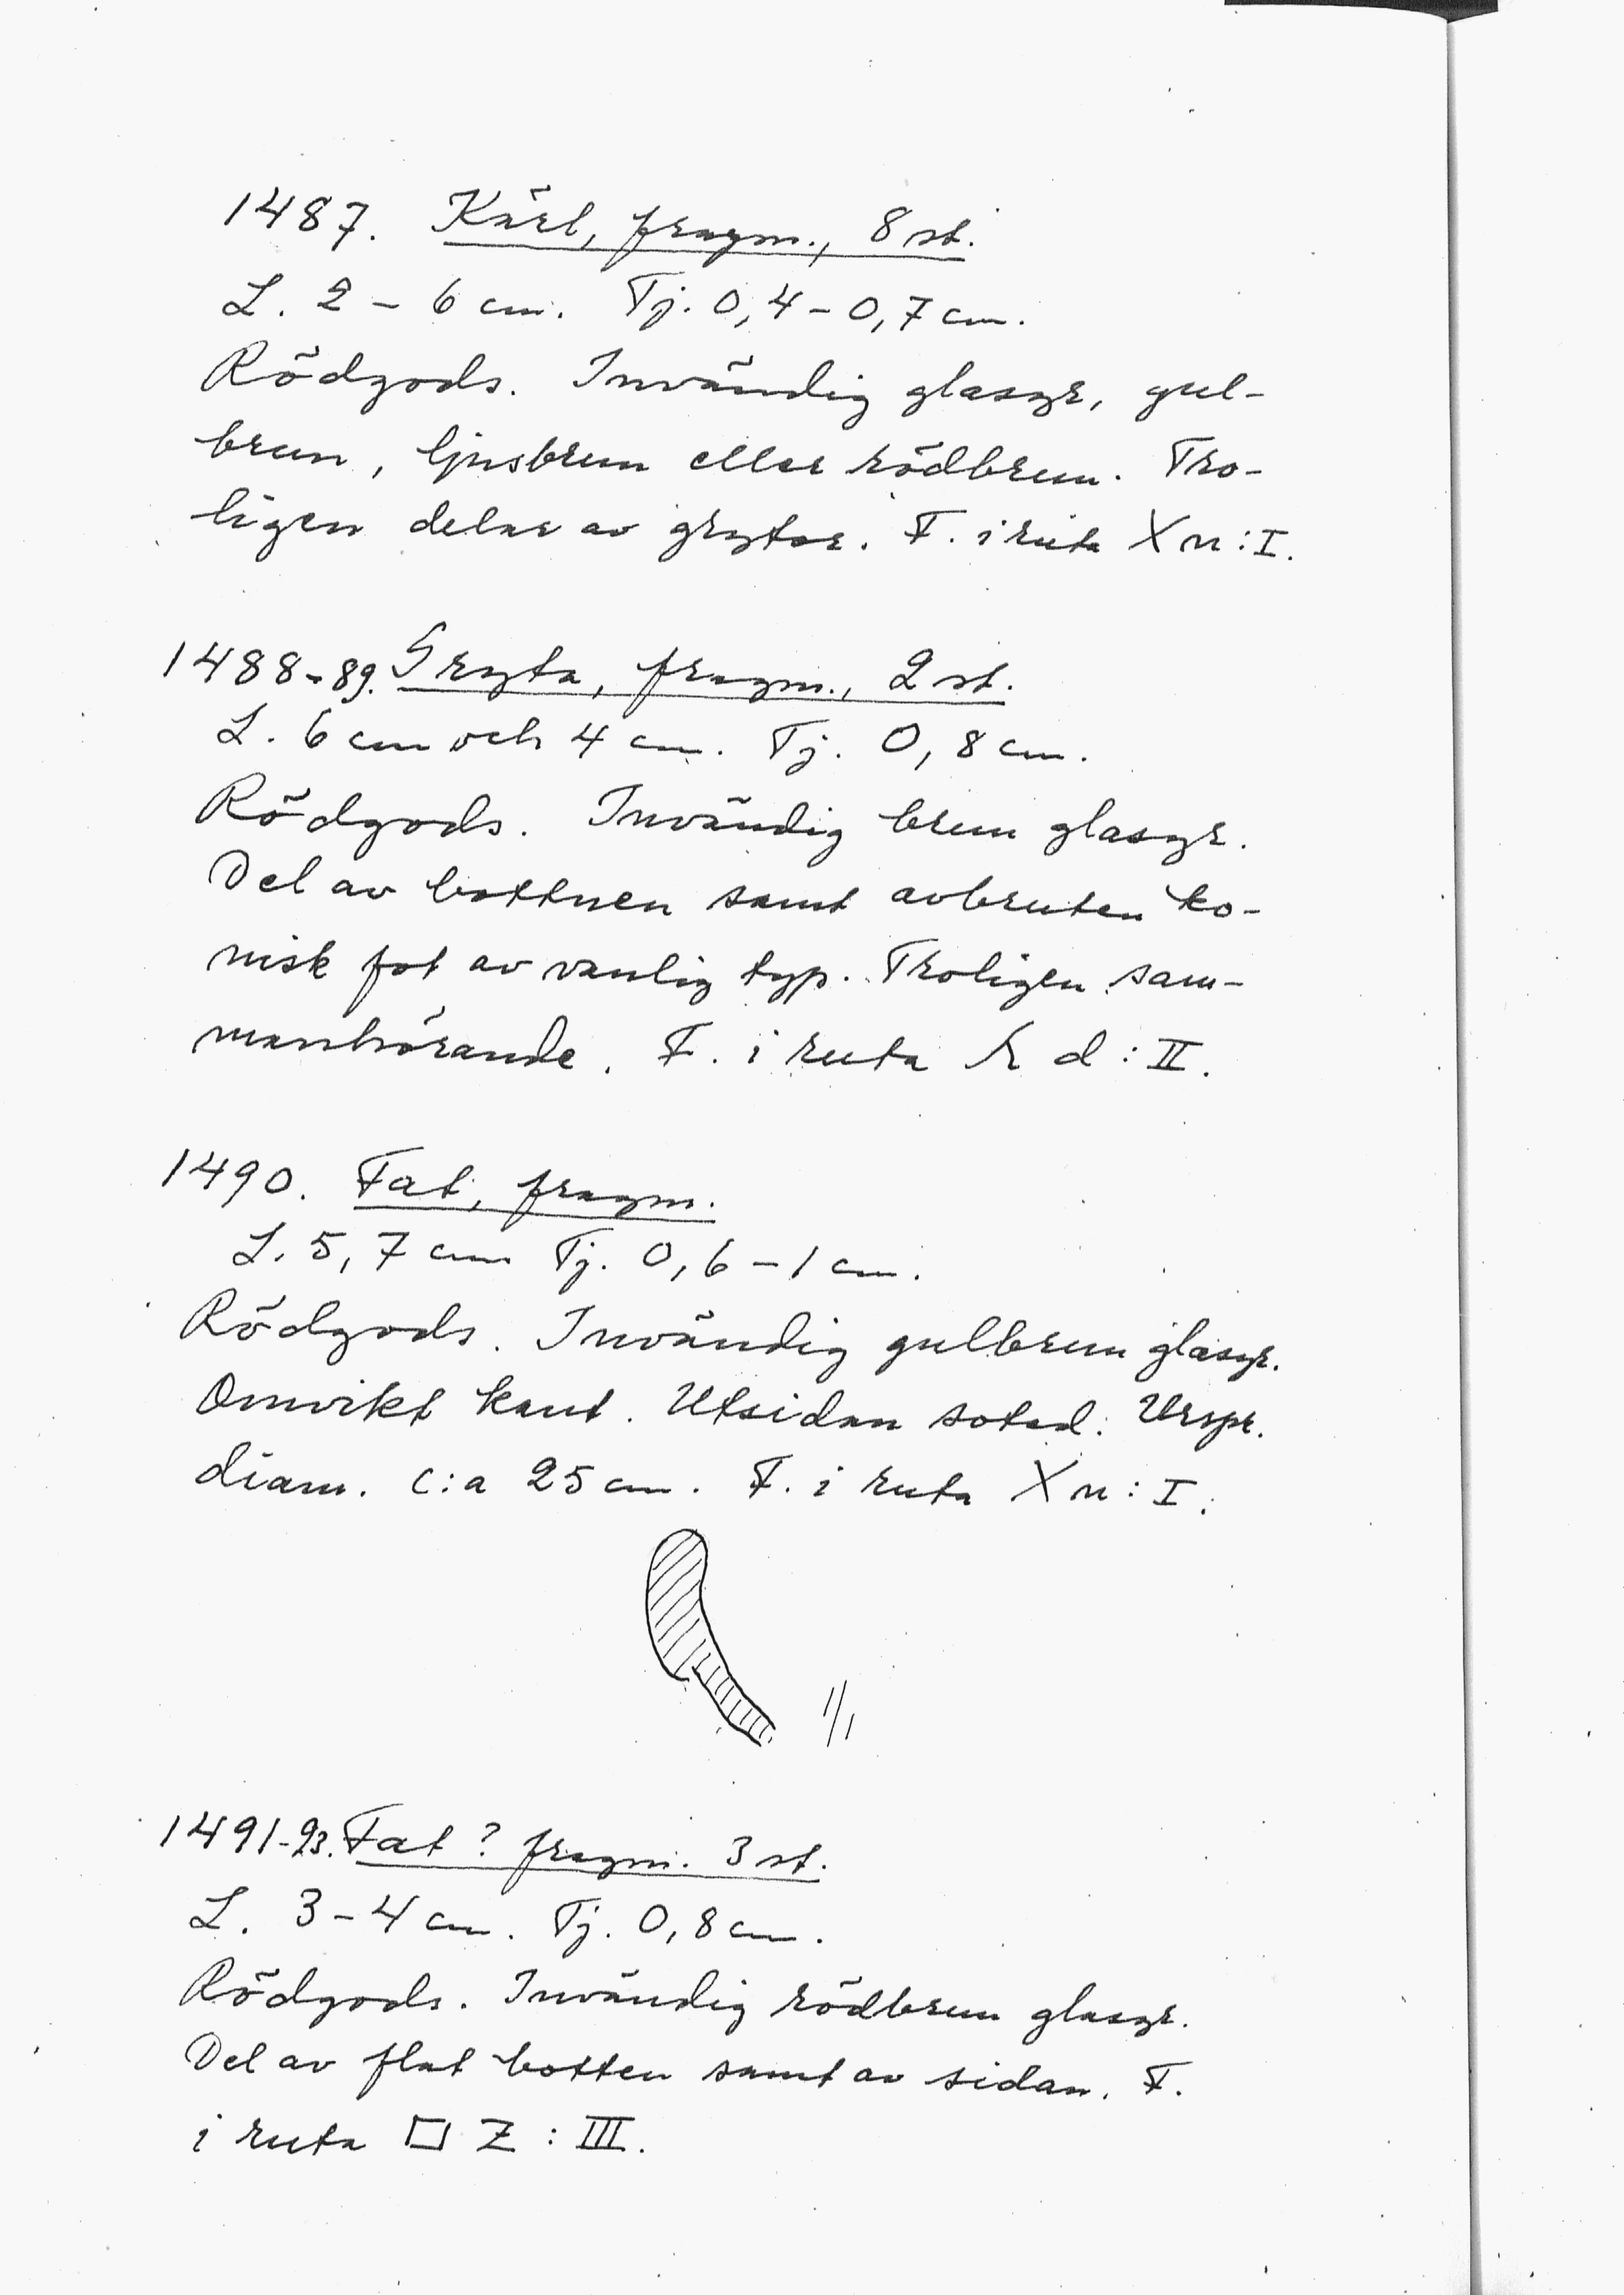 1487. Kärl, fragm., 8 st.
L. 2 – 6 cm. Tj. 0,4 – 0,7 cm.
Rödgods. Invändig glasyr, gul-
brun, ljusbrun eller rödbrun. Tro-
ligen delar av grytor. F. i ruta X n : I.
1488-89. Gryta, fragm., 2 st.
L. 6 cm och 4 cm. Tj. 0,8 cm.
Rödgods. Invändig brun glasyr.
Del av bottnen samt avbruten ko-
nisk fot av vanlig typ. Troligen sam-
manhörande. F. i ruta d : II.
1490. Fat, fragm.
L. 5,7 cm Tj. 0,6 – 1 cm.
Rödgods. Invändig gulbrun glasyr.
Omvikt kant. Utsidan sotad. Urspr.
diam. c:a 25 cm. F. i ruta X n : I.
1/1
1491-93. Fat? fragm. 3 st.
L. 3 – 4 cm. Tj. 0,8 cm.
Rödgods. Invändig rödbrun glasyr.
Del av flat botten samt av sidan. F.
i ruta □ Z : III.